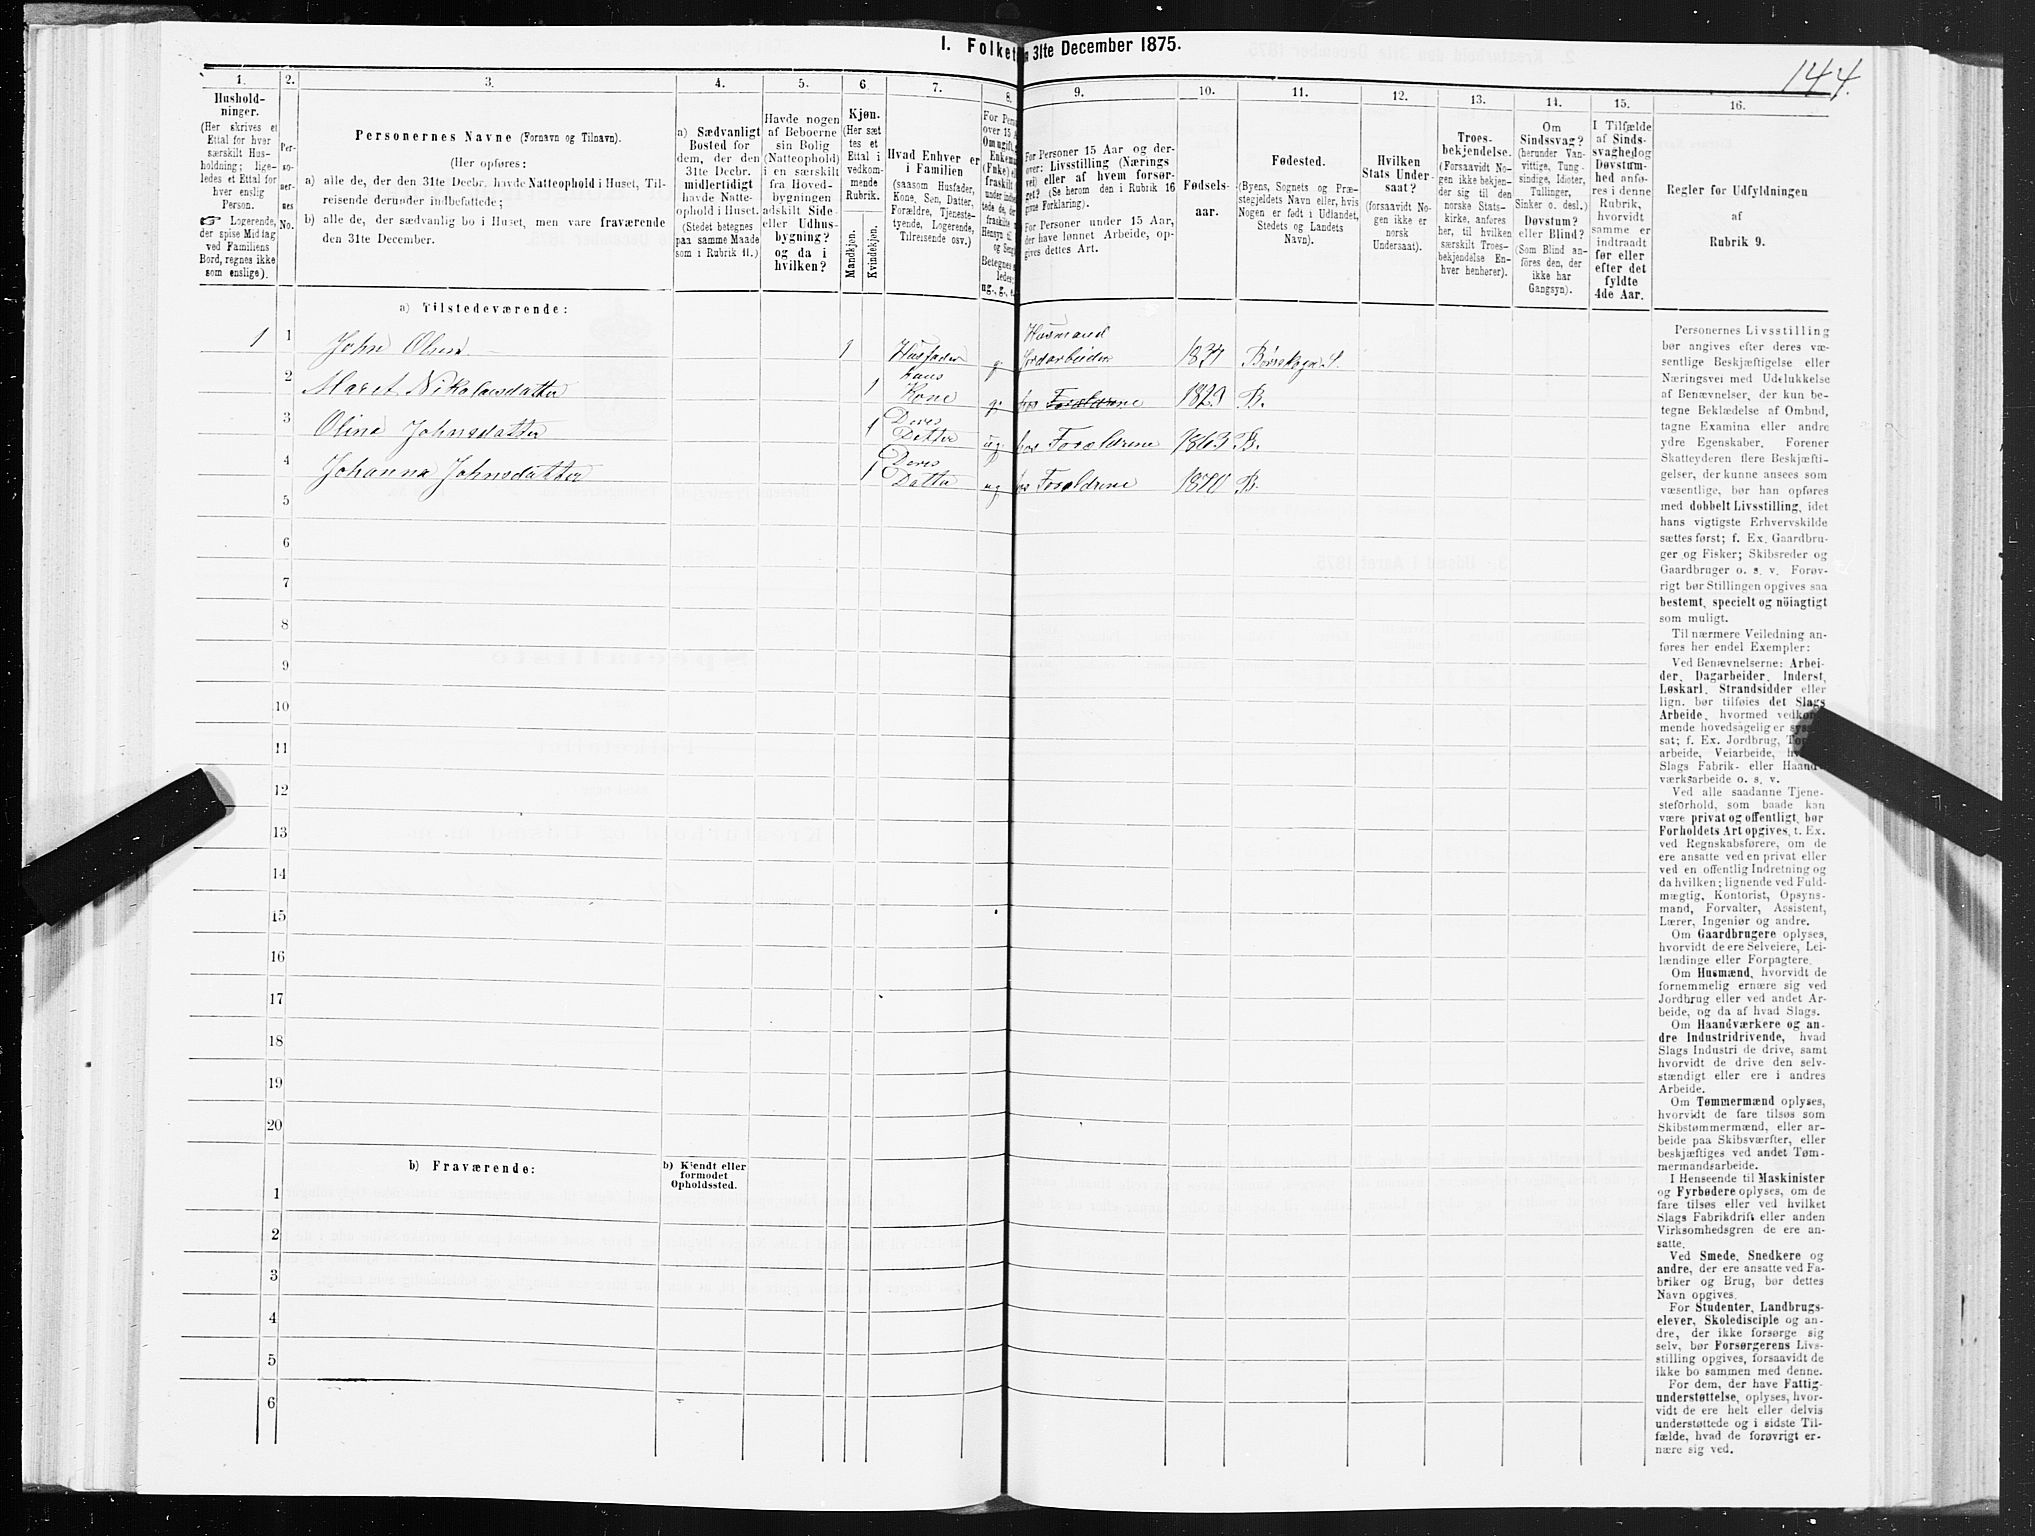 I. Folket
n 31te December 1875.
144.
1.
2.
3.
4.
5.
6
7.
8.
9.
10.
11.
12.
13.
14.
15.
16.
Hushold-
ninger.
(Her skrives et
Ettal for hver
særskilt Hus-
holdning; lige-
ledes et Ettal for
hver enslig
Person.
☞ Logerende,
der spise Midtag
ved Familiens
Bord, regnes ikke
som enslige).
Per-
so-
ner-
nes
No.
Personernes Navne (Fornavn og Tilnavn).
(Her opføres:
a) alle de, der den 31te Decbr. havde Natteophold i Huset, Til-
reisende derunder indbefattede;
b) alle de, der sædvanlig bo i Huset, men vare fraværende
den 31te December.
a) Sædvanligt
Bosted for
dem, der den
31te Decbr.
midlertidigt
havde Natte-
ophold i Huset.
(Stedet betegnes
paa samme Maade
som i Rubrik 11.)
Havde nogen
af Beboerne
sin Bolig
(Natteophold)
i en særskilt
fra Hoved-
bygningen
adskilt Side-
eller Udhus-
bygning?
og da i
hvilken?
Kjøn.
(Her sæt-
tes et
Ettal i
vedkom-
mende
Rubrik.
Mandkjøn.
Kvindekjøn.
Hvad Enhver er
i Familien
(saasom Husfader,
Kone, Søn, Datter,
Forældre, Tjeneste-
tyende, Logerende,
Tilreisende osv.)
For Perso
over 15 A
Om ugift, g
Enkema
(Fnke) el
fraskilt
Betegnes
ledes:
ug., g., e.
For Personer 15 Aar og der-
over: Livsstilling (Nærings
vei) eller af hvem forsør-
get? (Se herom den i Rubrik 16
givne Forklaring).
For Personer under 15 Aar,
der have lønnet Arbeide, op-
gives dettes Art.
Fødsels-
aar.
Fødested.
(Byens, Sognets og Præ-
stegjeldets Navn eller, hvis
Nogen er født i Udlandet,
Stedets og Landets
Navn).
Hvilken
Stats Under-
saat?
(forsaavidt No-
gen ikke er
norsk
Undersaat).
Troes-
bekjendelse.
(Forsaavidt No-
gen ikke bekjen-
der sig til den
norske Stats-
kirke, anføres
her, til hvilken
særskilt Troes-
bekjendelse En-
hver henhører).
Om
Sindssvag?
(herunder Van-
vittige, Tung-
sindige, Idioter,
Tullinger,
Sinker o. desl.)
Døvstum?
eller Blind?
(Som Blind an-
føres den, der
ikke har
Gangsyn).
I Tilfælde
af Sinds-
svaghed og
Døvstum-
hed anfø-
res i denne
Rubrik,
hvorvidt
samme er
indtraadt
før eller
efter det
fyldte
4de Aar.
Regler for Udfyldningen
af
Rubrik 9.
a) Tilstedeværende:
1 1 John Olsen 1 Husfader g Husmand Jordarbeider 1837 Børrskogn S.
2 Maret Nikolaisdatter 1 hans Kone g hos Forældrene 1829 B.
3 Olina Johnsdatter 1 Deres Datter ug hos Forældrene 1863 B.
4 Johanna Johnsdatter 1 Deres Datter ug hos Forældrene 1870 B.
5
6
7
8
9
10
11
12
13
14
15
16
17
18
19
20
b) Fraværende:
b) Kjendt eller
formodet
Opholdssted.
1
2
3
4
5
6
Personernes Livsstilling
bør angives efter deres væ-
sentlige Beskjæftigelse eller
Næringsvei med Udelukkelse
af Benævnelser, der kun be-
tegne Beklædelse af Ombud,
tagne Examina eller andre
ydre Egenskaber. Forener
Skatteyderen flere Beskjæfti-
gelser, der kunne ansees som
væsentlige, bør han opføres
med dobbelt Livsstilling, idet
hans vigtigste Erhvervskilde
sættes først; f. Ex. Gaardbru-
ger og Fisker; Skibsreder og
Gaardbruger o. s. v. Forøv-
rigt bør Stillingen opgives saa
bestemt, specielt og nöiagtigt
som muligt.
Til nærmere Veiledning an-
føres her endel Exempler:
Ved Benævnelserne: Arbei-
der, Dagarbeider, Inderst,
Løskarl, Strandsidder eller
lign. bør tilføies det Slags
Arbeide, hvormed vedkom-
mende hovedsagelig er syssel
sat; f. Ex. Jordbrug,
arbeide, Veiarbeide,
Slags Fabrik- eller Haand-
værksarbeide o. s. v.
Ved alle saadanne Tjene-
steforhold, som baade kan
være privat og offentligt, bør
Forholdets Art opgives, t. Ex.
ved Regnskabsførere, om de
ere ansatte ved en privat eller
ved en offentlig Indretning og
da hvilken; lignende ved Fuld-
mægtig, Kontorist, Opsyns-
mand, Forvalter, Assistent,
Lærer, Ingeniør og andre.
Om Gaardbrugere oplyses,
hvorvidt de ere Selveiere, Lei-
lændinge eller Forpagtere.
Om Husmænd, hvorvidt de
fornemmelig ernære sig ved
Jordbrug eller ved andet Ar-
beide, og da af hvad Slags.
Om Haandværkere og an-
dre Industridrivende, hvad
Slags Industri de drive, samt
hvorvidt de drive den selv-
stændigt eller ere i andres
Arbeide.
Om Tømmermænd oplyses,
hvorvidt de fare tilsøs som
Skibstømmermænd, eller ar-
beide paa Skibsværfter, eller
beskjæftiges ved andet Tøm-
mermandsarbeide.
I Henseende til Maskinister
og Fyrbødere oplyses, om de
fare tilsøs eller ved hvilket
Slags Fabrikdrift eller anden
Virksomhedsgren de ere an-
satte.
Ved Smede, Snedkere og
andre, der ere ansatte ved Fa-
briker og Brug, bør dettes
Navn opgives.
For Studenter, Landbrugs-
elever, Skoledisciple og an-
dre, der ikke forsørge sig
selv, bør Forsørgerens Livs-
stilling opgives, forsaavidt de
ikke bo sammen med denne.
For dem, der have Fattig-
understøttelse, oplyses, hvor-
vidt de ere helt eller delvis
understøttede og i sidste Til-
fælde, hvad de forøvrigt er-
nære sig ved.